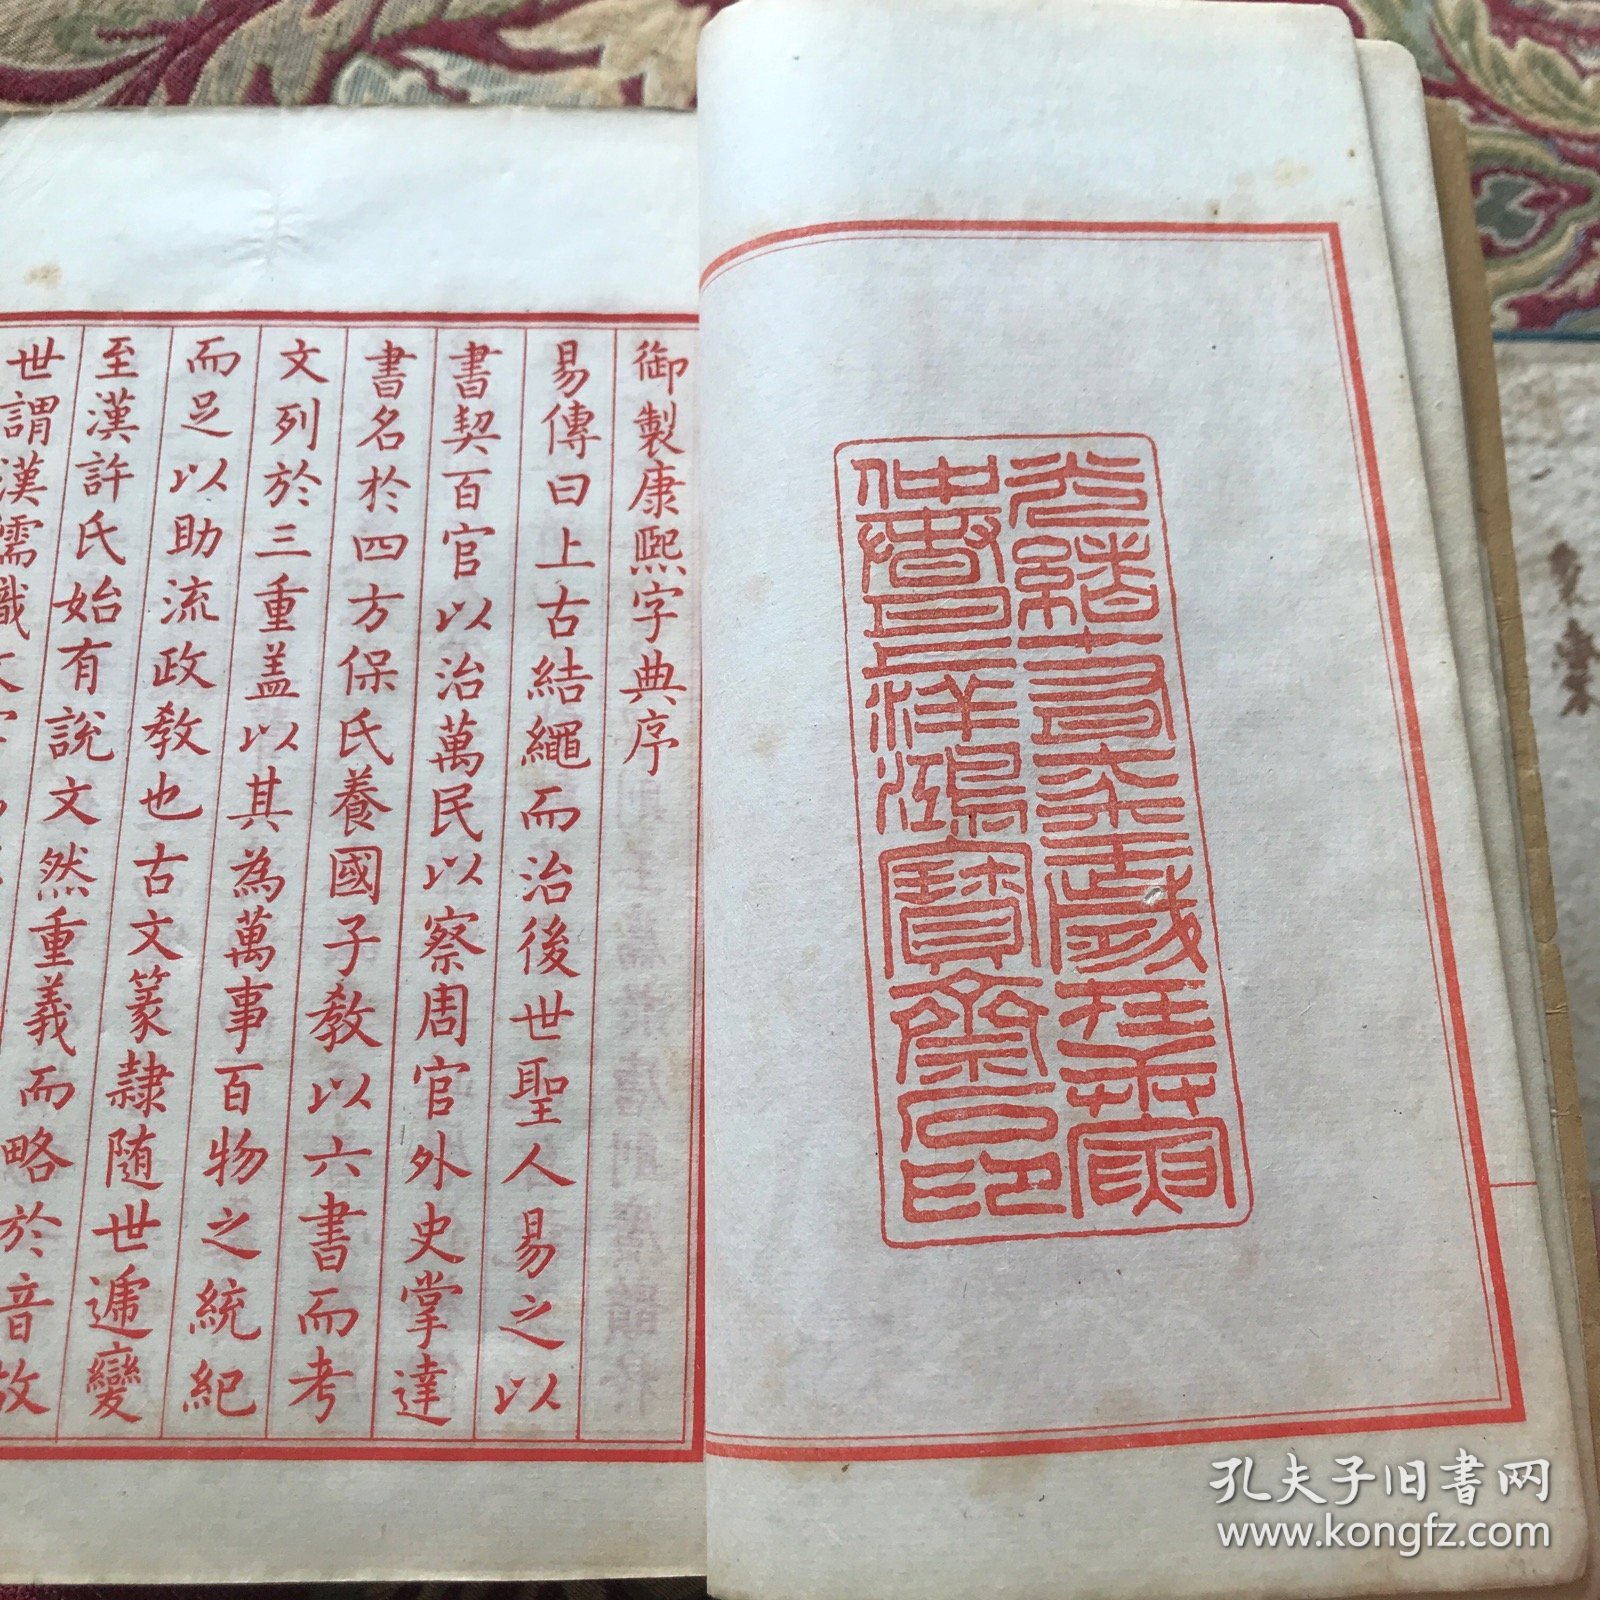 光緒十有六年歲在庚寅
仲春上洋鴻寶齋石印
御製康熙字典序
易傳曰上古結繩而治後世聖人易之以
書契百官以治萬民以察周官外史掌達
書名於四方保氏養國子教以六書而考
文列於三重盖以其為萬事百物之統紀
而足以助流政教也古文篆隸随世遞變
至漢許氏始有說文然重義而略於音故
世謂漢儒識文字
孔夫子旧书网
www.kongfz.com